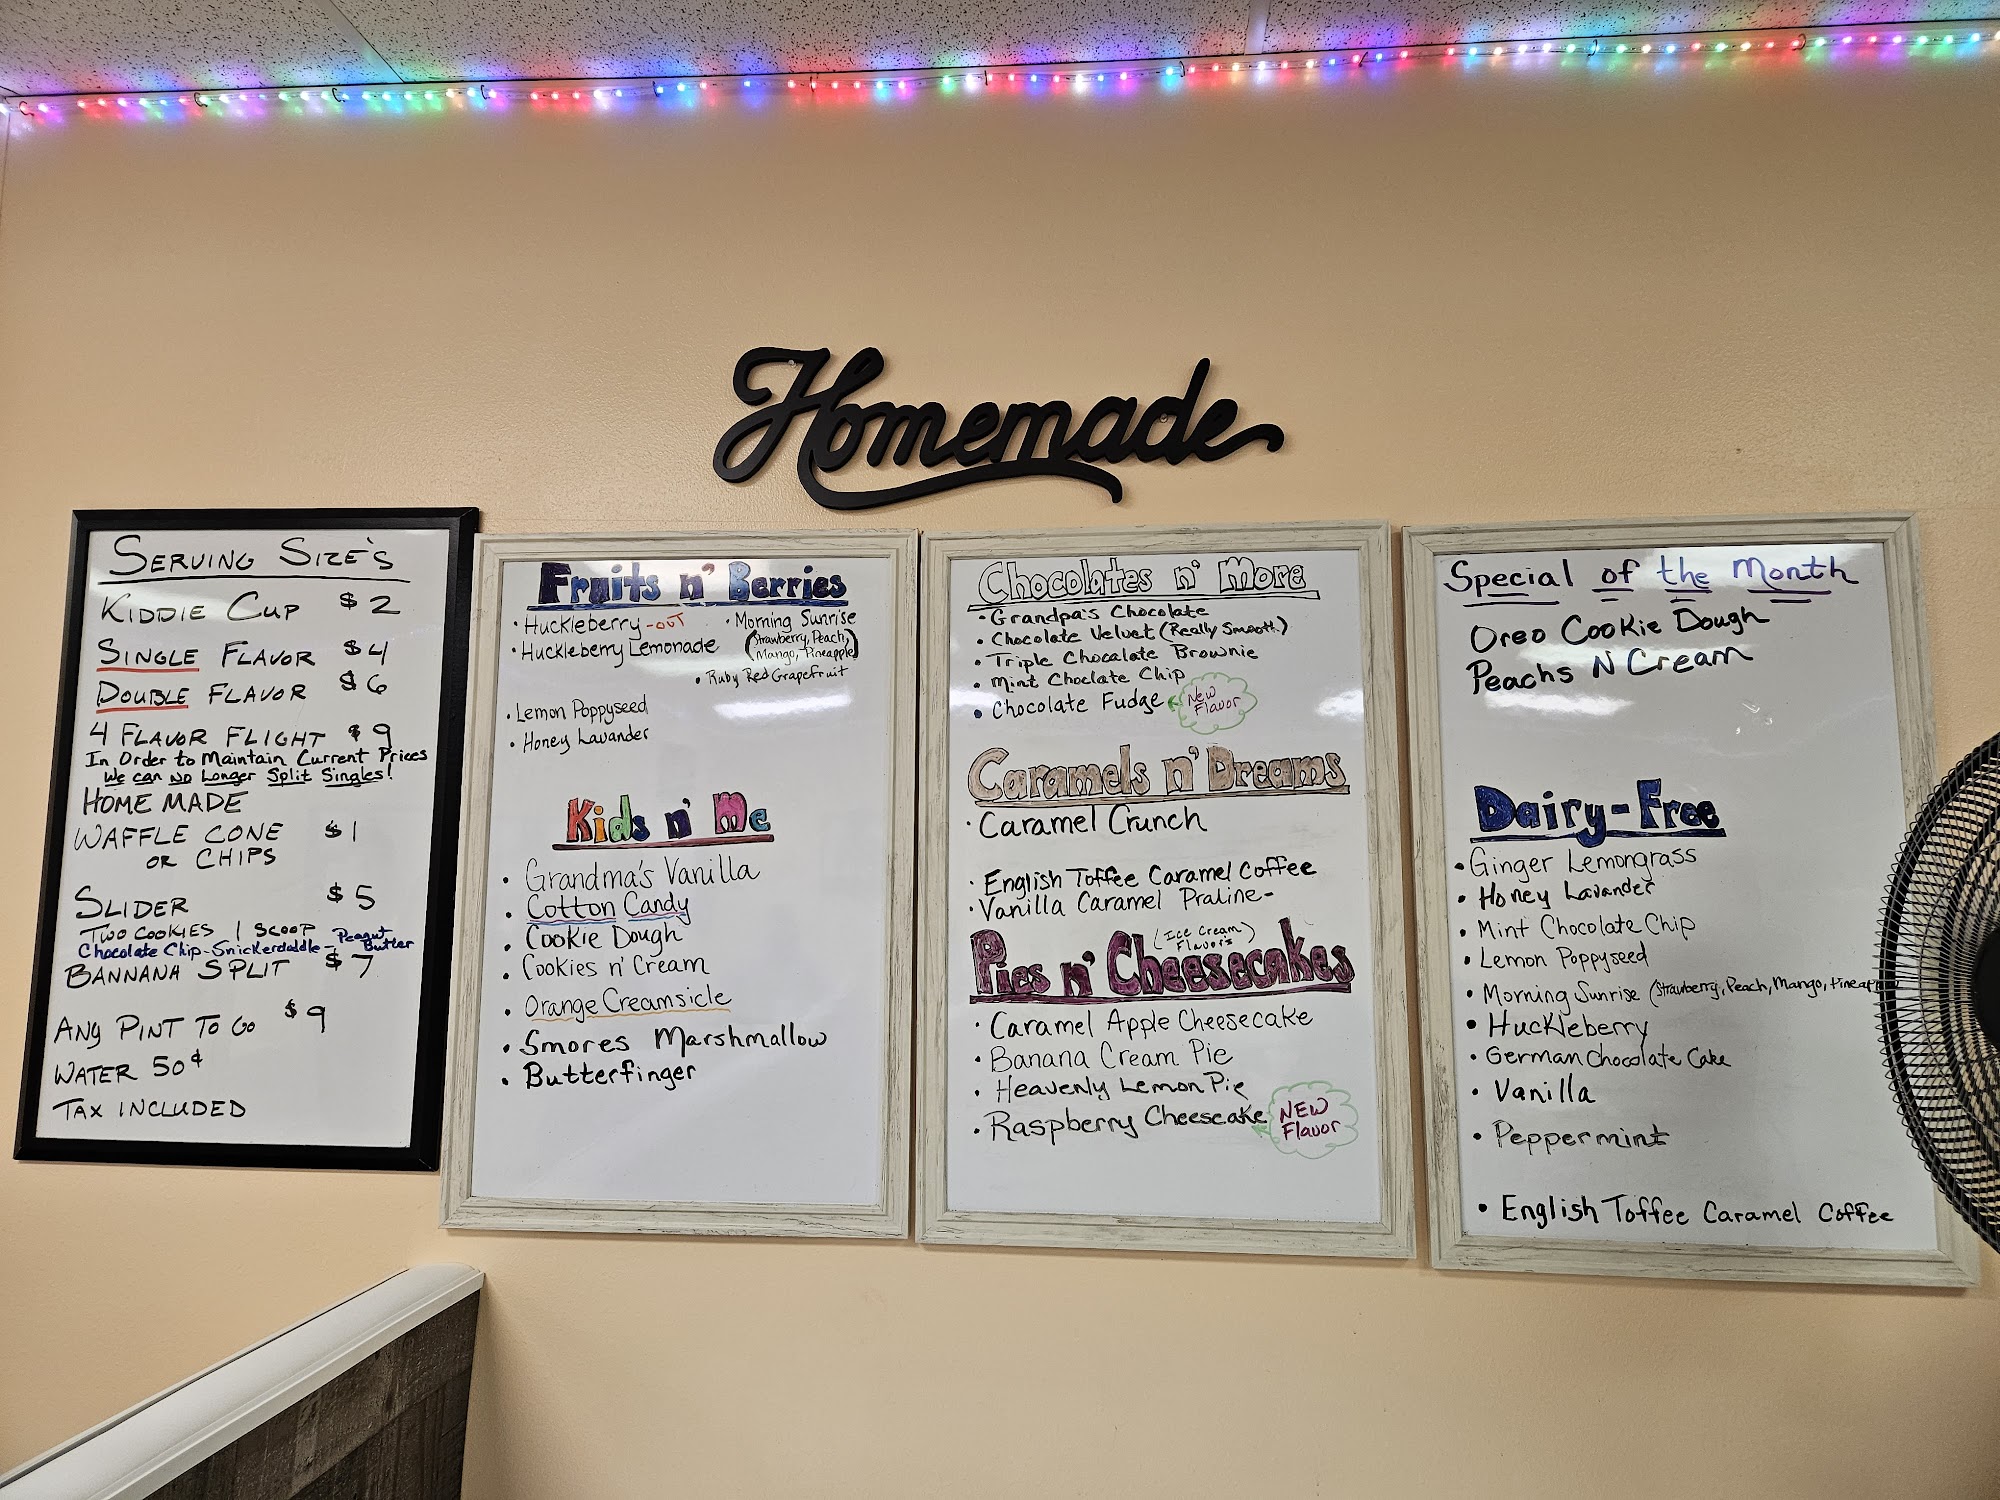 Homemade
SERVING SIZE'S
KIDDIE CUP $2
SINGLE FLAVOR $4
DOUBLE FLAVOR $6
4 FLAVOR FLIGHT $9
In Order to Maintain Current Prices
We can No Longer Split Singles!
HOME MADE
WAFFLE CONE $1
OR CHIPS
SLIDER $5
TWO COOKIES 1 SCOOP
Chocolate Chip-Snickerdaddle- Peanut Butter
BANNANA SPLIT $7
ANY PINT TO GO $9
WATER 50¢
TAX INCLUDED
Fruits n' Berries
• Huckleberry -OUT
• Huckleberry Lemonade
• Morning Sunrise
(Strawberry, Peach,
Mango, Pineapple)
• Ruby Red Grapefruit
• Lemon Poppyseed
• Honey Lavander
Kids n' Me
• Grandma's Vanilla
• Cotton Candy
• Cookie Dough
• Cookies n' Cream
• Orange Creamsicle
• Smores Marshmallow
• Butterfinger
Chocolates n' More
• Grandpa's Chocolate
• Chocolate Velvet (Really Smooth)
• Triple Chocalate Brownie
• Mint Choclate Chip
• Chocolate Fudge New Flavor
Caramels n' Dreams
• Caramel Crunch
• English Toffee Caramel Coffee
• Vanilla Caramel Praline-
(Ice Cream
Flavors)
Pies n' Cheesecakes
• Caramel Apple Cheesecake
• Banana Cream Pie
• Heavenly Lemon Pie
• Raspberry Cheesecake NEW Flavor
Special of the Month
Oreo Cookie Dough
Peachs N Cream
Dairy-Free
• Ginger Lemongrass
• Honey Lavander
• Mint Chocolate Chip
• Lemon Poppyseed
• Morning Sunrise (Strawberry, Peach, Mango, Pineapp
• Huckleberry
• German Chocolate Cake
• Vanilla
• Peppermint
• English Toffee Caramel Coffee